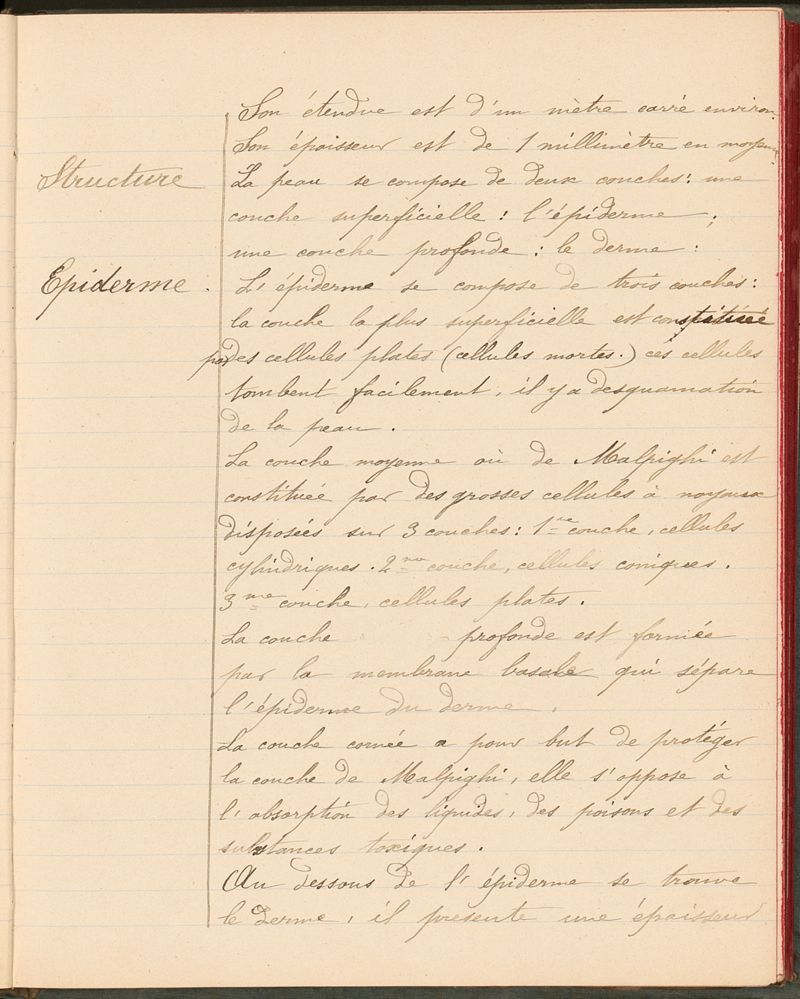 Son étendue est d'un mètre carré environ.
Son épaisseur est de 1 millimètre en moyenne.
Structure
La peau se compose de deux couches : une
couche superficielle : l'épiderme ;
une couche profonde : le derme :
Epiderme.
L'épiderme se compose de trois couches :
la couche la plus superficielle est constituée
par des cellules plates (cellules mortes.) ces cellules
tombent facilement, il y a desquamation
de la peau.
La couche moyenne où de Malpighi est
constituée par des grosses cellules à noyaux
disposées sur 3 couches : 1re couche, cellules
cylindriques. 2me couche, cellules coniques.
3me couche, cellules plates.
La couche profonde est formée
par la membrane basale qui sépare
l'épiderme du derme.
La couche cornée a pour but de protéger
la couche de Malpighi, elle s'oppose à
l'absorption des liquides, des poisons et des
substances toxiques.
Au dessous de l'épiderme se trouve
le derme, il présente une épaisseur